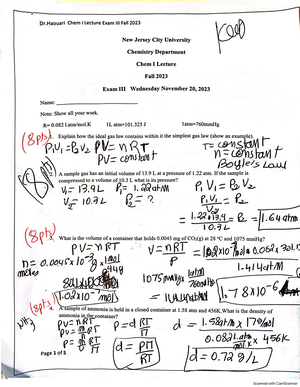 Dr.Haouari Chem I Lecture Exam III Fall 2023
Keep
New Jersey City University
Chemistry Department
Chem I Lecture
Fall 2023
Exam III Wednesday November 20, 2023
Name:
Note: Show all your work.
R= 0.082 Latm/mol.K 1L atm=101.325 J 1atm=760mmHg
(8pts) Explain how the ideal gas law contains within it the simplest gas law (show an example).
P₁V₁ = P₂V₂ PV = nRT T = constant
PV = constant n = constant
Boyle's Law
(8pts) A sample gas has an initial volume of 13.9 L at a pressure of 1.22 atm. If the sample is
compressed to a volume of 10.3 L what is its pressure?
V₁ = 13.9L P₁ = 1.22atm P₁V₁ = P₂V₂
V₂ = 10.3L P₂ = ? P₁V₁ = P₂
V₂
1.22*13.9 = 1.64atm
10.3L
(8pts) What is the volume of a container that holds 0.0045 mg of CO₂(g) at 28 °C and 1075 mmHg?
PV = nRT V = nRT
P
n = 0.0045x10⁻³g x 1mol
moles 44g
1.02x10⁻⁷ mol
1075mmHg x 1atm
760mmHg
1.414atm
1.78x10⁻⁶
(8pts) A sample of ammonia is held in a closed container at 1.58 atm and 456K. What is the density of
ammonia in the container?
NH₃
PV = nRT P = dRT d = 1.58atm x 17g/mol
0.082 L.atm x 456K
d = PM d = 0.72 g/L
RT
Page 1 of 5
Scanned with CamScanner